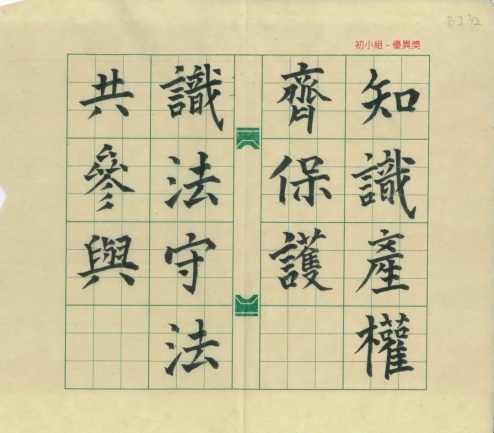 B232
初小組 - 優異獎
知識產權
齊保護
識法守法
共參與